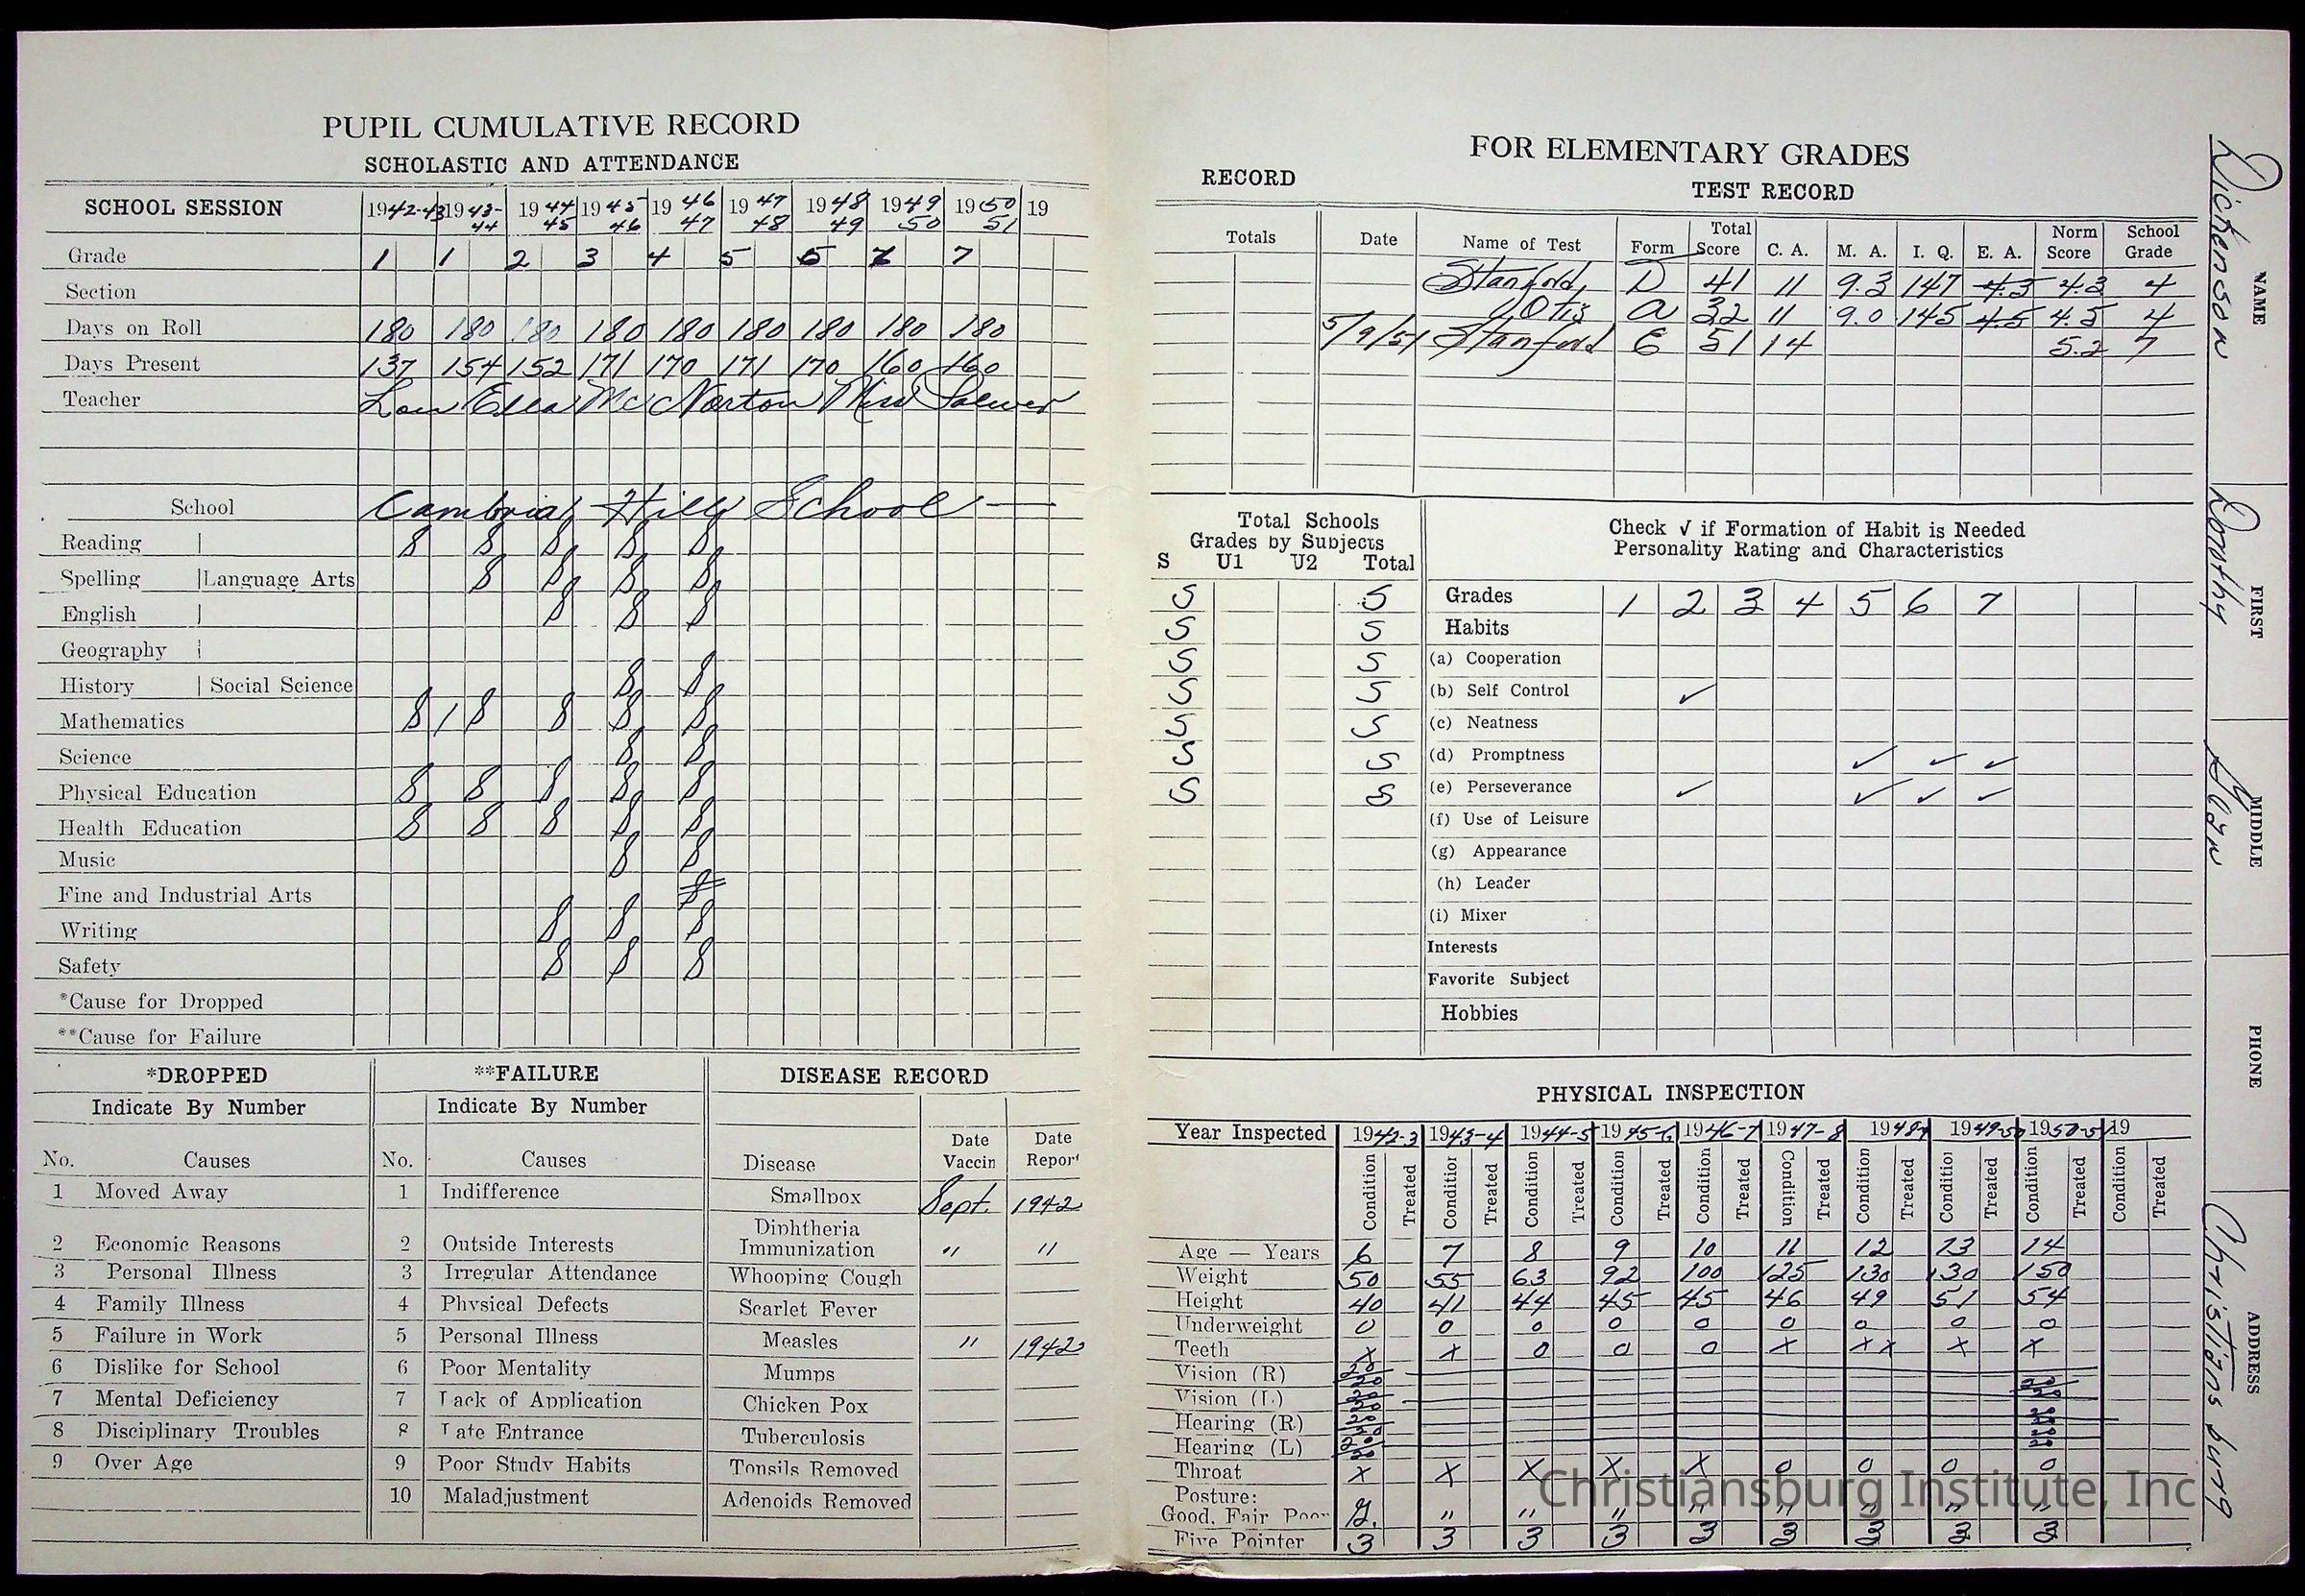 PUPIL CUMULATIVE RECORD
SCHOLASTIC AND ATTENDANCE
SCHOOL SESSION 1942-43 1943-44 1944 45 1945 46 1946 47 1947 48 1948 49 1949 50 1950 51 19
Grade 1 1 2 3 4 5 7
Section
Days on Roll 180 180 180 180 180 180 180 180 180
Days Present 137 154 152 171 170 171 170 160 160
Teacher Lou Ella Mc Norton Miss
School Cambria Hills School
Reading S S S S S
Spelling Language Arts S S S S
English S S S
Geography
History Social Science S S
Mathematics S / S S S S
Science S S
Physical Education S S S S S
Health Education S S S S S
Music S S
Fine and Industrial Arts
Writing S S S
Safety S S S
*Cause for Dropped
**Cause for Failure
*DROPPED
Indicate By Number
No. Causes
1 Moved Away
2 Economic Reasons
3 Personal Illness
4 Family Illness
5 Failure in Work
6 Dislike for School
7 Mental Deficiency
8 Disciplinary Troubles
9 Over Age
**FAILURE
Indicate By Number
No. Causes
1 Indifference
2 Outside Interests
3 Irregular Attendance
4 Physical Defects
5 Personal Illness
6 Poor Mentality
7 Lack of Application
8 Late Entrance
9 Poor Study Habits
10 Maladjustment
DISEASE RECORD
Disease Date Vaccin Date Report
Smallpox Sept. 1942
Diphtheria
Immunization " "
Whooping Cough
Scarlet Fever
Measles " 1942
Mumps
Chicken Pox
Tuberculosis
Tonsils Removed
Adenoids Removed
FOR ELEMENTARY GRADES
RECORD
TEST RECORD
Totals Date Name of Test Form Total Score C. A. M. A. I. Q. E. A. Norm Score School Grade
Stanford D 41 11 9.3 147 4.3 4.3 4
Otis A 32 11 9.0 145 4.5 4.5 4
5/9/51 Stanford E 51 14 5.2 7
Total Schools
Grades by Subjects
S U1 U2 Total
S 5
S 5
S 5
S 5
S 5
S 5
S 5
Check √ if Formation of Habit is Needed
Personality Rating and Characteristics
Grades 1 2 3 4 5 6 7
Habits
(a) Cooperation
(b) Self Control ✓
(c) Neatness
(d) Promptness ✓ ✓ ✓
(e) Perseverance ✓ ✓ ✓ ✓
(f) Use of Leisure
(g) Appearance
(h) Leader
(i) Mixer
Interests
Favorite Subject
Hobbies
PHYSICAL INSPECTION
Year Inspected 1942-3 1943-4 1944-5 1945-6 1946-7 1947-8 1948-9 1949-50 1950-51 19
Condition Treated Condition Treated Condition Treated Condition Treated Condition Treated Condition Treated Condition Treated Condition Treated Condition Treated Condition Treated
Age — Years 6 7 8 9 10 11 12 13 14
Weight 50 55 63 92 100 125 130 130 150
Height 40 41 44 45 45 46 49 51 54
Underweight 0 0 0 0 0 0 0 0 0
Teeth x x 0 0 0 x x x x x
Vision (R) 20 20
Vision (L) 20 20
Hearing (R) 20 20
Hearing (L) 20 20
Throat x x x x x 0 0 0 0
Posture:
Good, Fair Poor G. " " " " " " " "
Five Pointer 3 3 3 3 3 3 3 3 3
NAME Dickenson
FIRST Dorothy
MIDDLE
PHONE
ADDRESS Christiansburg
Christiansburg Institute, Inc